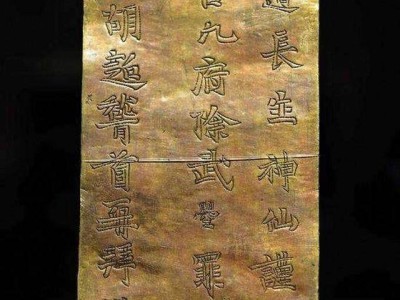 道長生神仙謹
官九府除武曌罪
胡超稽首再拜